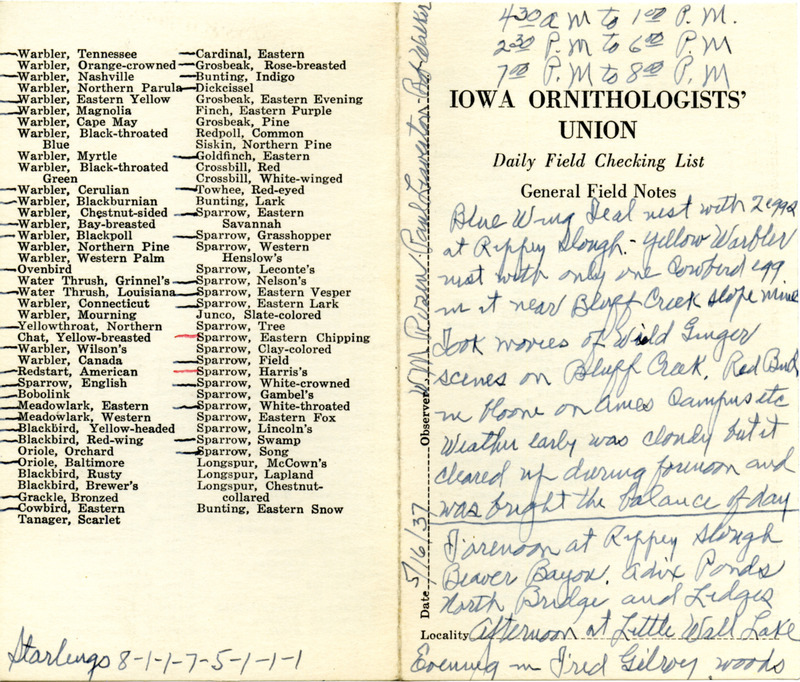 Warbler, Tennessee
Warbler, Orange-crowned
Warbler, Nashville
Warbler, Northern Parula
Warbler, Eastern Yellow
Warbler, Magnolia
Warbler, Cape May
Warbler, Black-throated
Blue
Warbler, Myrtle
Warbler, Black-throated
Green
Warbler, Cerulian
Warbler, Blackburnian
Warbler, Chestnut-sided
Warbler, Bay-breasted
Warbler, Blackpoll
Warbler, Northern Pine
Warbler, Western Palm
Ovenbird
Water Thrush, Grinnel's
Water Thrush, Louisiana
Warbler, Connecticut
Warbler, Mourning
Yellowthroat, Northern
Chat, Yellow-breasted
Warbler, Wilson's
Warbler, Canada
Redstart, American
Sparrow, English
Bobolink
Meadowlark, Eastern
Meadowlark, Western
Blackbird, Yellow-headed
Blackbird, Red-wing
Oriole, Orchard
Oriole, Baltimore
Blackbird, Rusty
Blackbird, Brewer's
Grackle, Bronzed
Cowbird, Eastern
Tanager, Scarlet
Cardinal, Eastern
Grosbeak, Rose-breasted
Bunting, Indigo
Dickcissel
Grosbeak, Eastern Evening
Finch, Eastern Purple
Grosbeak, Pine
Redpoll, Common
Siskin, Northern Pine
Goldfinch, Eastern
Crossbill, Red
Crossbill, White-winged
Towhee, Red-eyed
Bunting, Lark
Sparrow, Eastern
Savannah
Sparrow, Grasshopper
Sparrow, Western
Henslow's
Sparrow, Leconte's
Sparrow, Nelson's
Sparrow, Eastern Vesper
Sparrow, Eastern Lark
Junco, Slate-colored
Sparrow, Tree
Sparrow, Eastern Chipping
Sparrow, Clay-colored
Sparrow, Field
Sparrow, Harris's
Sparrow, White-crowned
Sparrow, Gambel's
Sparrow, White-throated
Sparrow, Eastern Fox
Sparrow, Lincoln's
Sparrow, Swamp
Sparrow, Song
Longspur, McCown's
Longspur, Lapland
Longspur, Chestnut-
collared
Bunting, Eastern Snow
Starlings 8-1-1-7-5-1-1-1
4 30 A M to 1 00 P. M.
2 30 P. M to 6 00 P. M
7 00 P. M to 8 00 P. M
IOWA ORNITHOLOGISTS'
UNION
Daily Field Checking List
General Field Notes
Blue Wing Teal nest with 2 eggs
at Rippey Slough. - Yellow Warbler
nest with only one Cowbird egg
in it near Bluff Creek slope mine
Took movies of Wild Ginger
scenes on Bluff Creek. Red Bud
in Boone on Ames Campus etc
Weather early was cloudy but it
cleared up during forenoon and
was bright the balance of day
Forenoon at Rippey Slough
Beaver Bayou. Adix Ponds
North Bridge and Ledges
Locality Afternoon at Little Wall Lake
Evening in Fred Gilroy woods
Date 5/16/37 Observer W M Rosen. Paul